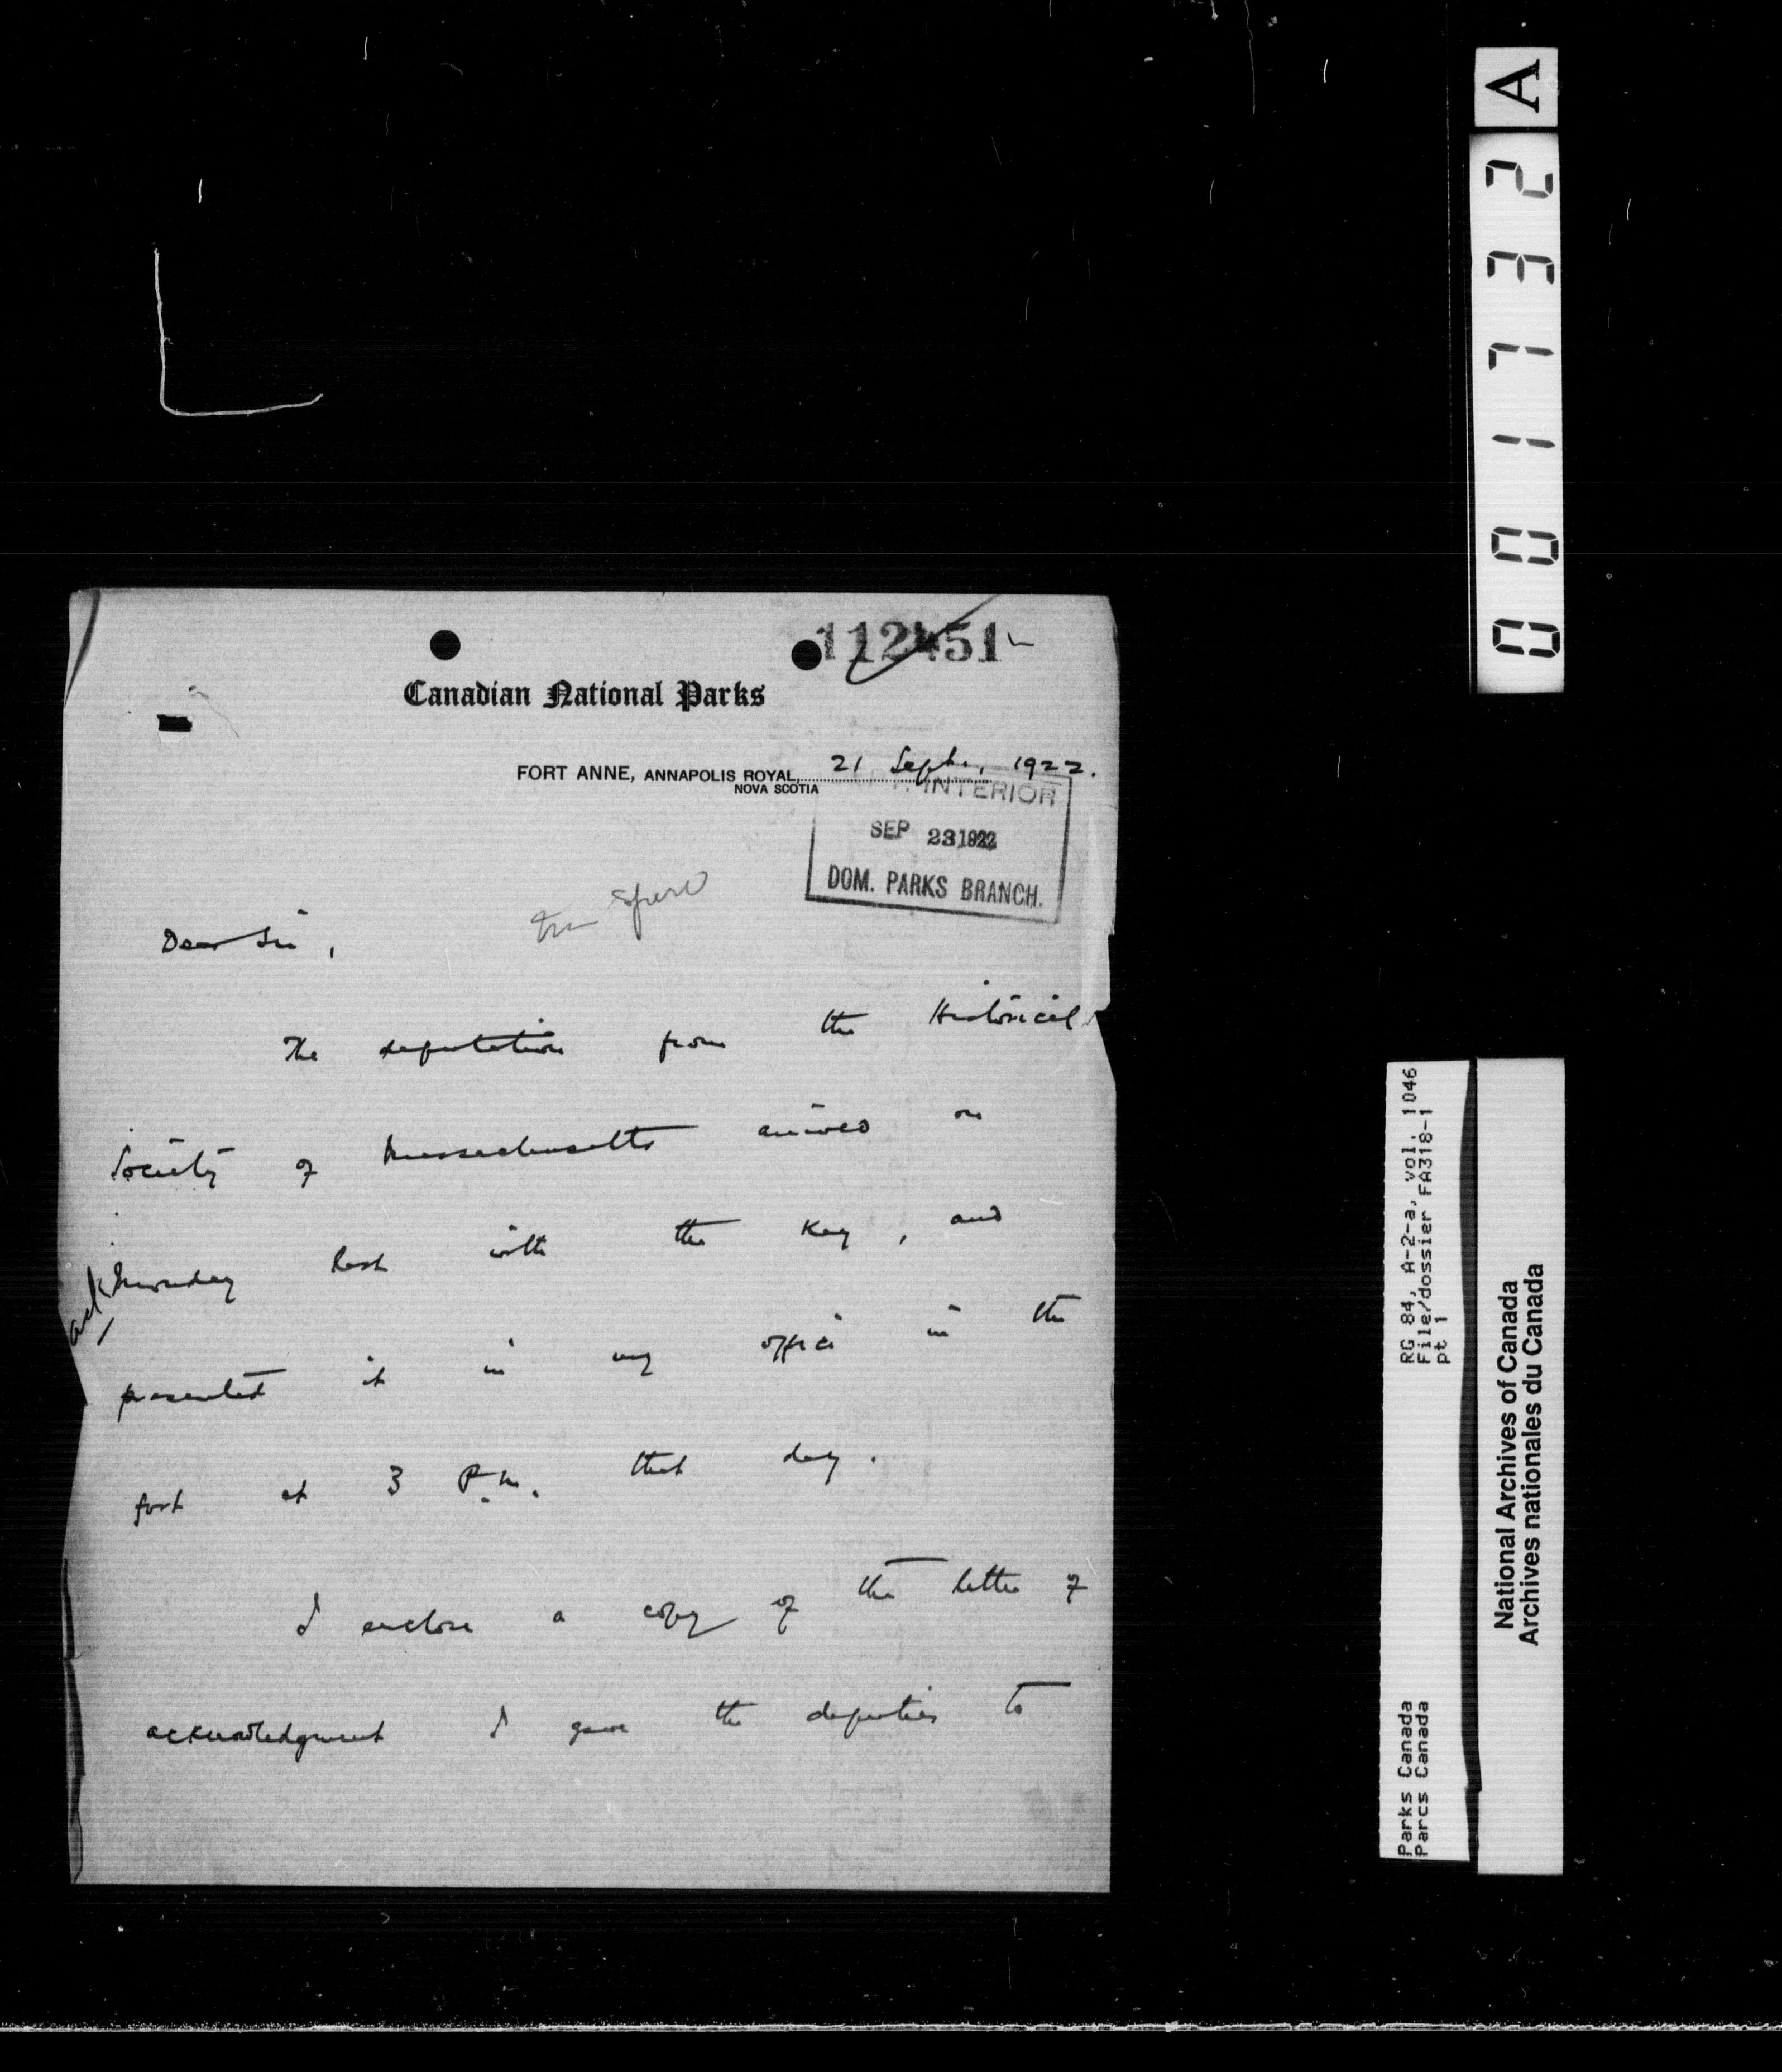 112451
Canadian National Parks
FORT ANNE, ANNAPOLIS ROYAL, 21 Sept., 1922.
NOVA SCOTIA
INTERIOR
SEP 23 1922
DOM. PARKS BRANCH.
Dear Sir,
The deputation from the Historical
Society of Massachusetts arrived on
Thursday last with the Key, and
ack
presented it in my office in the
fort at 3 P.m. that day.
I enclose a copy of the letter of
acknowledgment I gave the deputies to
A
001732
RG 84, A-2-a, vol. 1046
File/dossier FA318-1
pt 1
Parks Canada
Parcs Canada
National Archives of Canada
Archives nationales du Canada